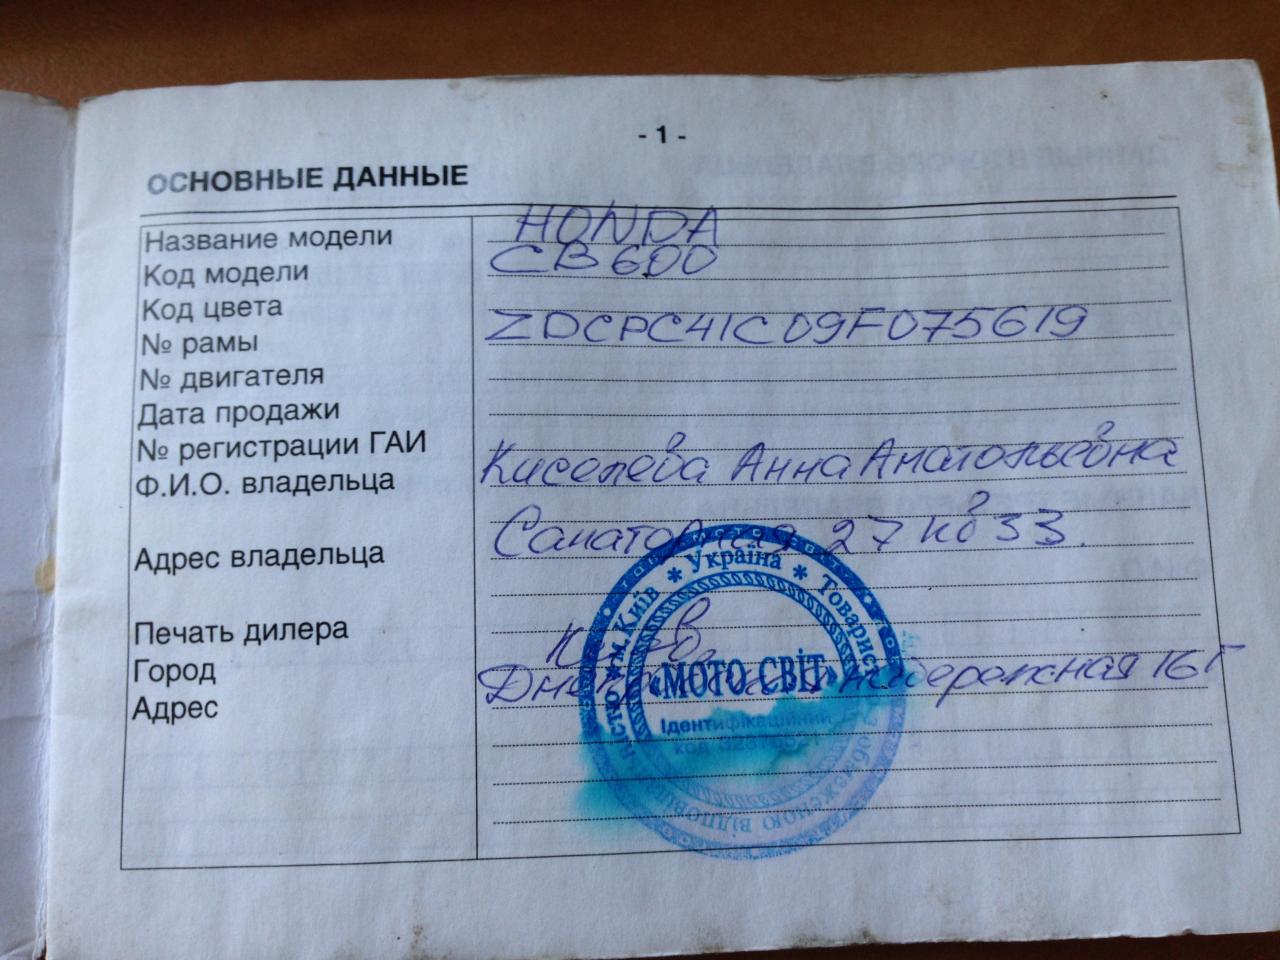 - 1 -
ОСНОВНЫЕ ДАННЫЕ
Название модели HONDA
Код модели CB 600
Код цвета
№ рамы ZDCPC41C09F075619
№ двигателя
Дата продажи
№ регистрации ГАИ
Ф.И.О. владельца Киселева Анна Анатольевна
Адрес владельца Санаторная 27 кв 33.
Печать дилера
Город Киев
Адрес набережная 16 Г
* Україна * Товариство з обмеженою відповідальністю * м. Київ
«МОТО СВІТ»
Ідентифікаційний
код